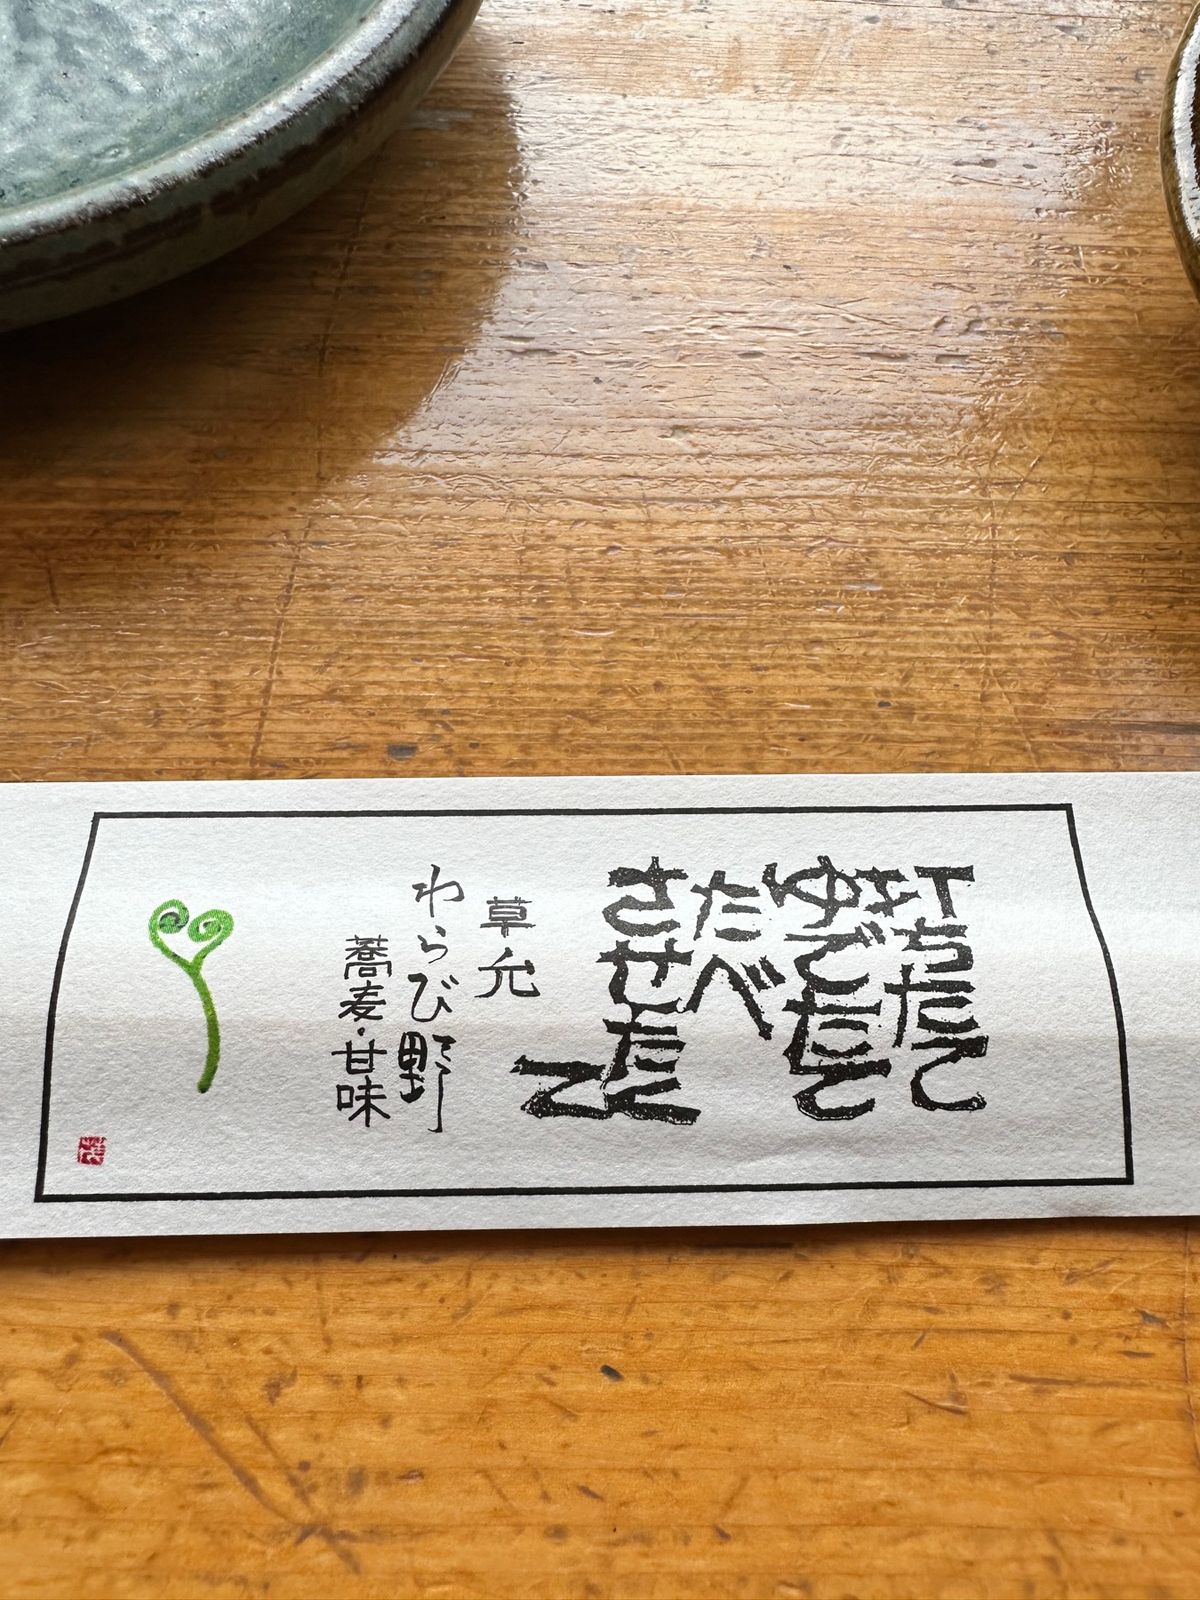 打ちたて
ゆでたて
たべ
させたくて
草允
わらび野
蕎麦・甘味